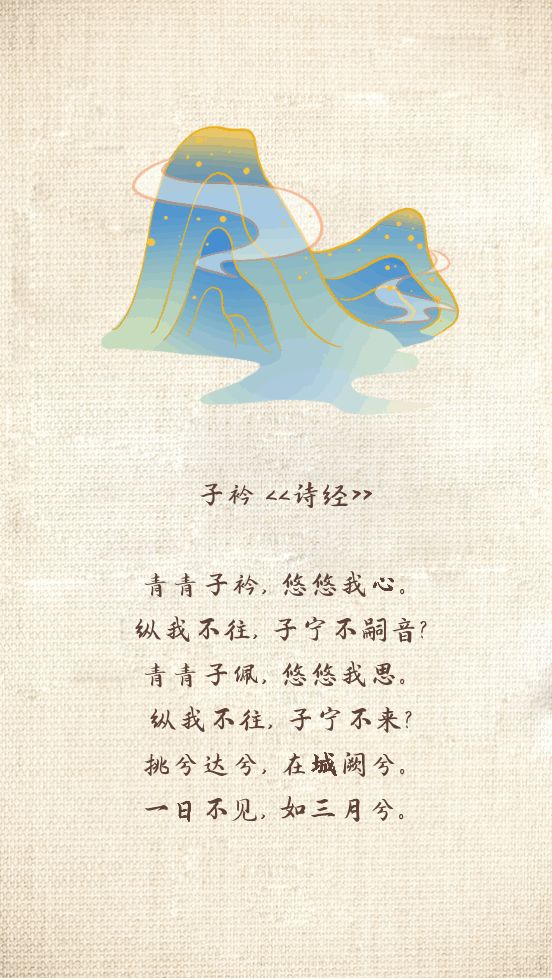 子衿 <<诗经>>
青青子衿, 悠悠我心。
纵我不往, 子宁不嗣音?
青青子佩, 悠悠我思。
纵我不往, 子宁不来?
挑兮达兮, 在城阙兮。
一日不见, 如三月兮。